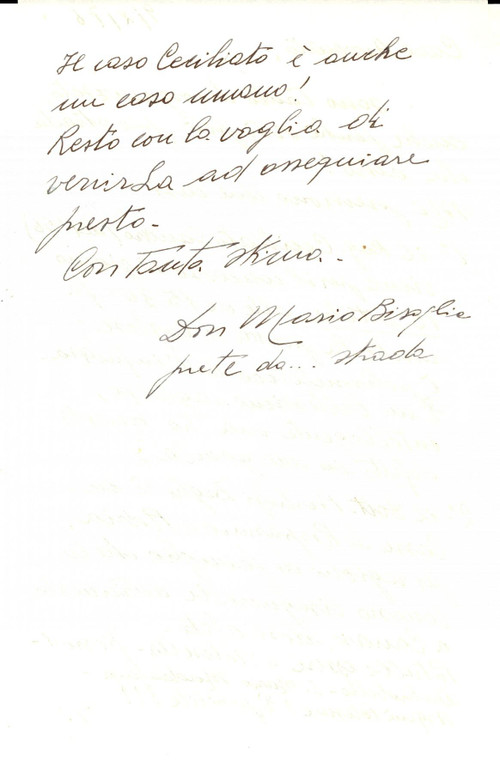 Il caso Ceciliato è anche
un caso umano!
Resto con la voglia di
venirLa ad ossequiare
presto -
Con tanta stima. -
Don Mario Bisaglia
prete da... strada